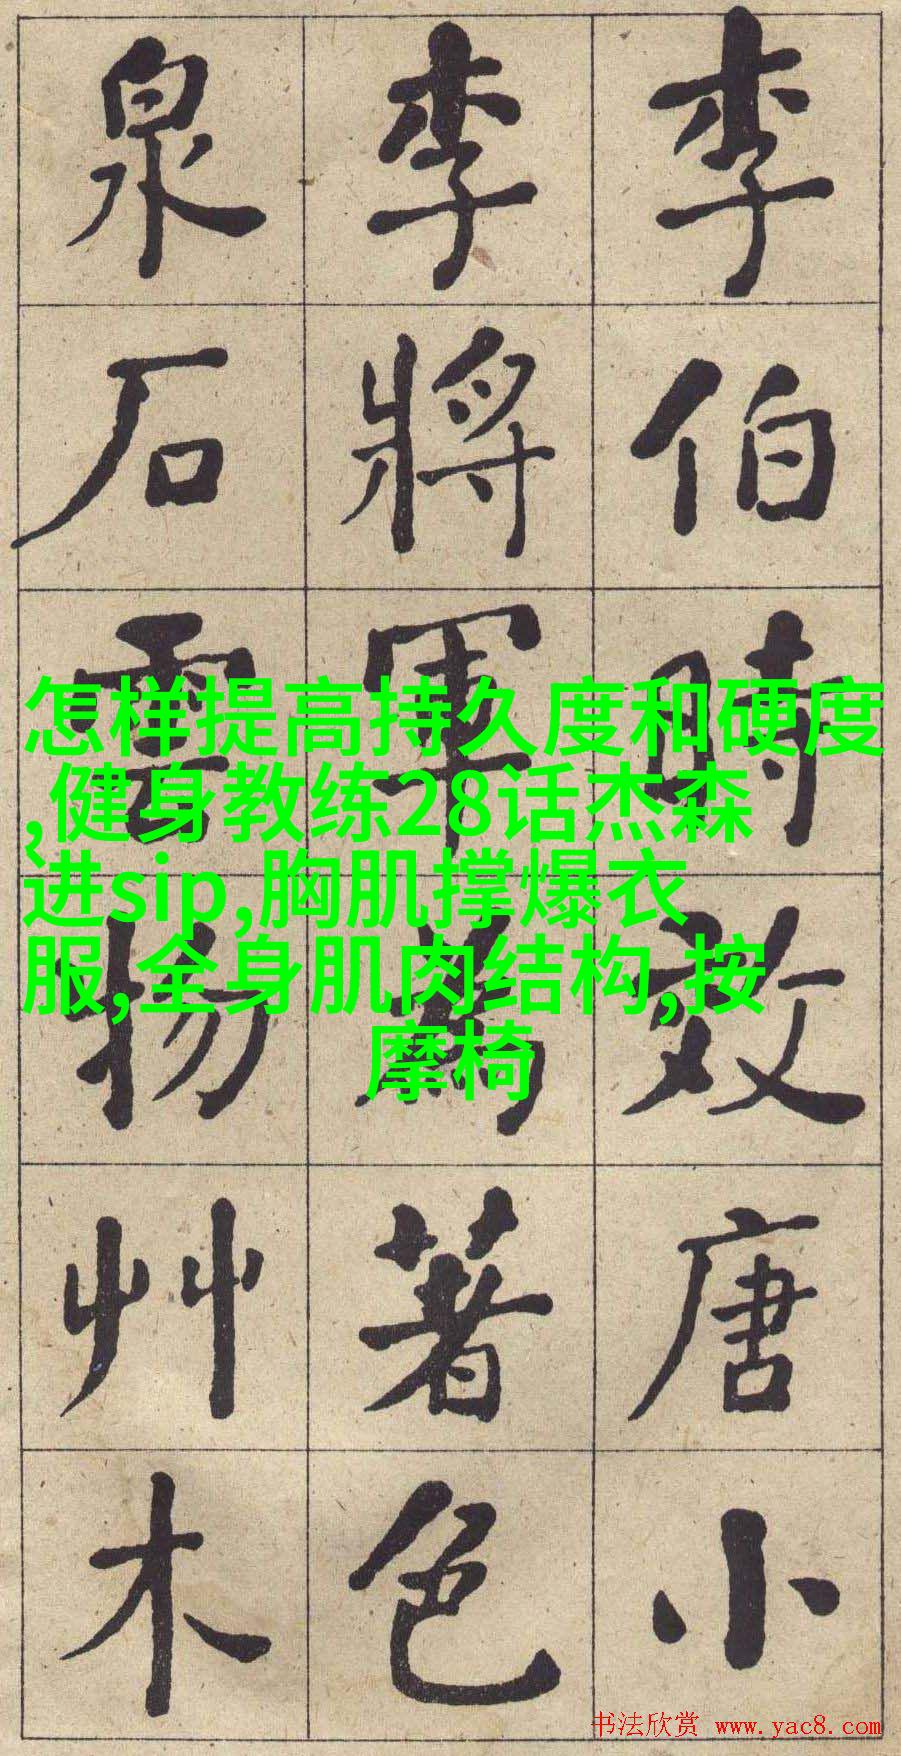 李伯時效唐小
李將軍為著色
泉石雲物艸木
怎样提高持久度和硬度
,健身教练28话杰森
进sip,胸肌撑爆衣
服,全身肌肉结构,按
摩椅
书法欣赏 www.yac8.com